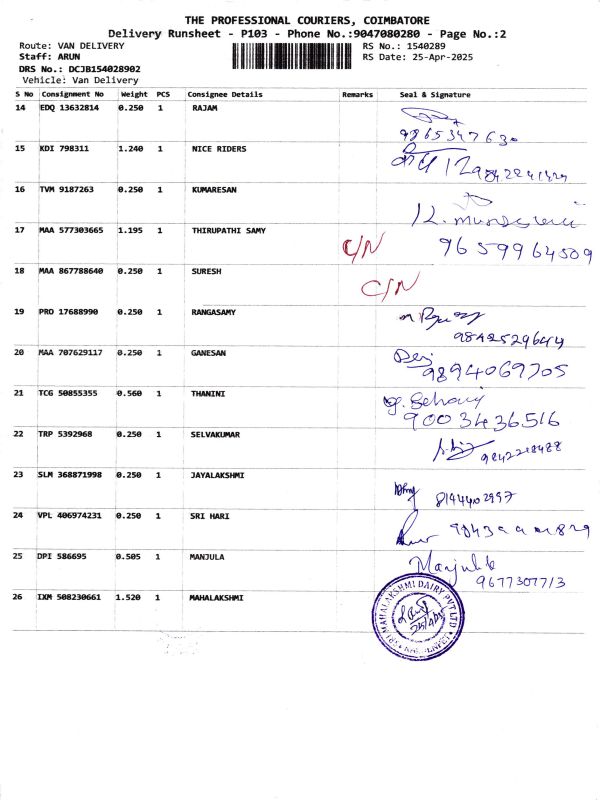 THE PROFESSIONAL COURIERS, COIMBATORE
Delivery Runsheet - P103 - Phone No.:9047080280 - Page No.:2
Route: VAN DELIVERY RS No.: 1540289
Staff: ARUN RS Date: 25-Apr-2025
DRS No.: DCJB154028902
Vehicle: Van Delivery
S No Consignment No Weight PCS Consignee Details Remarks Seal & Signature
14 EDQ 13632814 0.250 1 RAJAM
9865347630
15 KDI 798311 1.240 1 NICE RIDERS
16 TVM 9187263 0.250 1 KUMARESAN
17 MAA 577303665 1.195 1 THIRUPATHI SAMY C/N 9659964509
18 MAA 867788640 0.250 1 SURESH C/N
19 PRO 17688990 0.250 1 RANGASAMY
9842529644
20 MAA 707629117 0.250 1 GANESAN
9894069705
21 TCG 50855355 0.560 1 THANINI
9003436516
22 TRP 5392968 0.250 1 SELVAKUMAR
23 SLM 368871998 0.250 1 JAYALAKSHMI
8144402997
24 VPL 406974231 0.250 1 SRI HARI
25 DPI 586695 0.505 1 MANJULA
9677307713
26 IXM 508230661 1.520 1 MAHALAKSHMI
SRI MAHALAKSHMI DAIRY PVT LTD